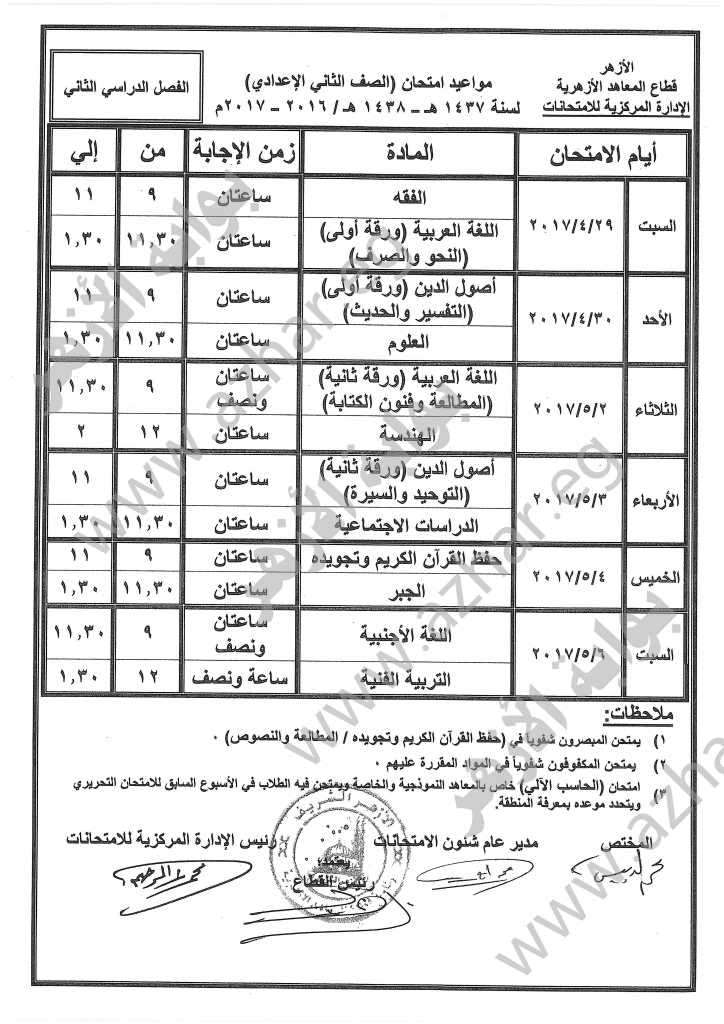 الأزهر
قطاع المعاهد الأزهرية
الإدارة المركزية للامتحانات
مواعيد امتحان (الصف الثاني الإعدادي)
لسنة ١٤٣٧ هـ – ١٤٣٨ هـ / ٢٠١٦ – ٢٠١٧م
الفصل الدراسي الثاني
أيام الامتحان المادة زمن الإجابة من إلي
السبت ٢٠١٧/٤/٢٩ الفقه ساعتان ٩ ١١
اللغة العربية (ورقة أولى) ساعتان ١١,٣٠ ١,٣٠
(النحو والصرف)
الأحد ٢٠١٧/٤/٣٠ أصول الدين (ورقة أولى) ساعتان ٩ ١١
(التفسير والحديث)
العلوم ساعتان ١١,٣٠ ١,٣٠
الثلاثاء ٢٠١٧/٥/٢ اللغة العربية (ورقة ثانية) ساعتان ٩ ١١,٣٠
(المطالعة وفنون الكتابة) ونصف
الهندسة ساعتان ١٢ ٢
الأربعاء ٢٠١٧/٥/٣ أصول الدين (ورقة ثانية) ساعتان ٩ ١١
(التوحيد والسيرة)
الدراسات الاجتماعية ساعتان ١١,٣٠ ١,٣٠
الخميس ٢٠١٧/٥/٤ حفظ القرآن الكريم وتجويده ساعتان ٩ ١١
الجبر ساعتان ١١,٣٠ ١,٣٠
السبت ٢٠١٧/٥/٦ اللغة الأجنبية ساعتان ٩ ١١,٣٠
ونصف
التربية الفنية ساعة ونصف ١٢ ١,٣٠
ملاحظات:
١) يمتحن المبصرون شفوياً في (حفظ القرآن الكريم وتجويده / المطالعة والنصوص) ٠
٢) يمتحن المكفوفون شفوياً في المواد المقررة عليهم ٠
٣) امتحان (الحاسب الآلي) خاص بالمعاهد النموذجية والخاصة ويمتحن فيه الطلاب في الأسبوع السابق للامتحان التحريري
ويتحدد موعده بمعرفة المنطقة.
المختص مدير عام شئون الامتحانات رئيس الإدارة المركزية للامتحانات
يعتمد،
رئيس القطاع
الأزهر الشريف
بوابة الأزهر
www.azhar.eg
بوابة الأزهر
www.azhar.eg
بوابة الأزهر
www.azhar